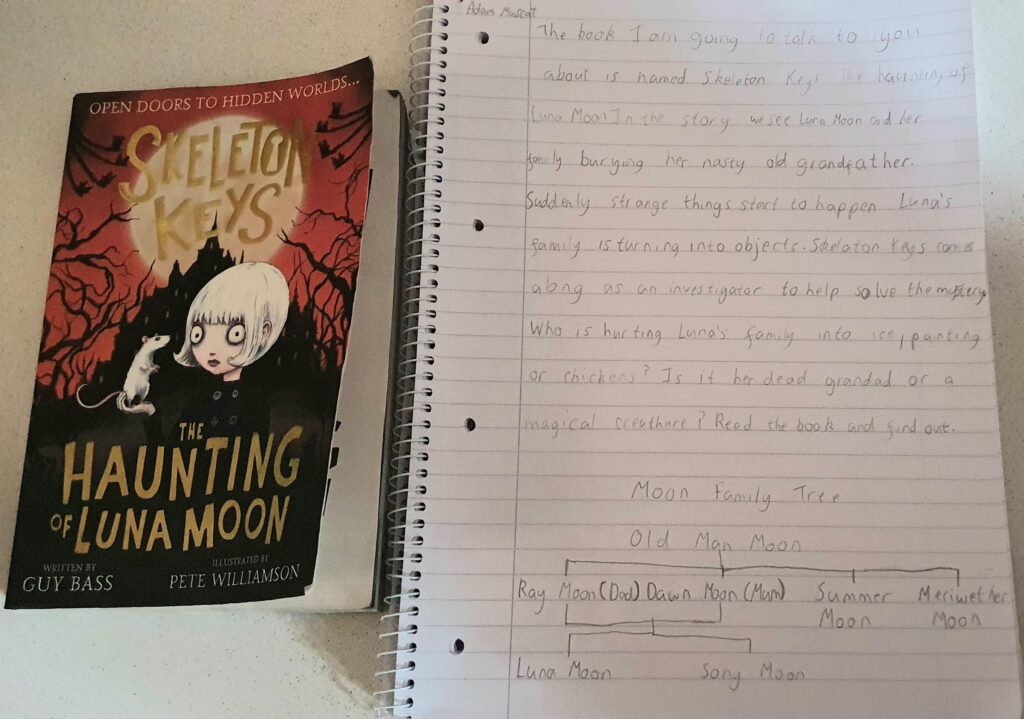 OPEN DOORS TO HIDDEN WORLDS...
SKELETON
KEYS
THE
HAUNTING
OF LUNA MOON
WRITTEN BY
GUY BASS
ILLUSTRATED BY
PETE WILLIAMSON
Adam Muscat
The book I am going to talk to you
about is named Skeleton Keys the haunting of
Luna Moon In the story we see Luna Moon and her
family burying her nasty old grandfather.
Suddenly strange things start to happen Luna's
family is turning into objects. Skeleton Keys comes
along as an investigator to help solve the mystery
Who is hurting Luna's family into ice, painting
or chickens? Is it her dead grandad or a
magical creathure? Read the book and find out.
Moon Family Tree
Old Man Moon
Ray Moon (Dad) Dawn Moon (Mum) Summer Moon Meriwether Moon
Luna Moon Sony Moon